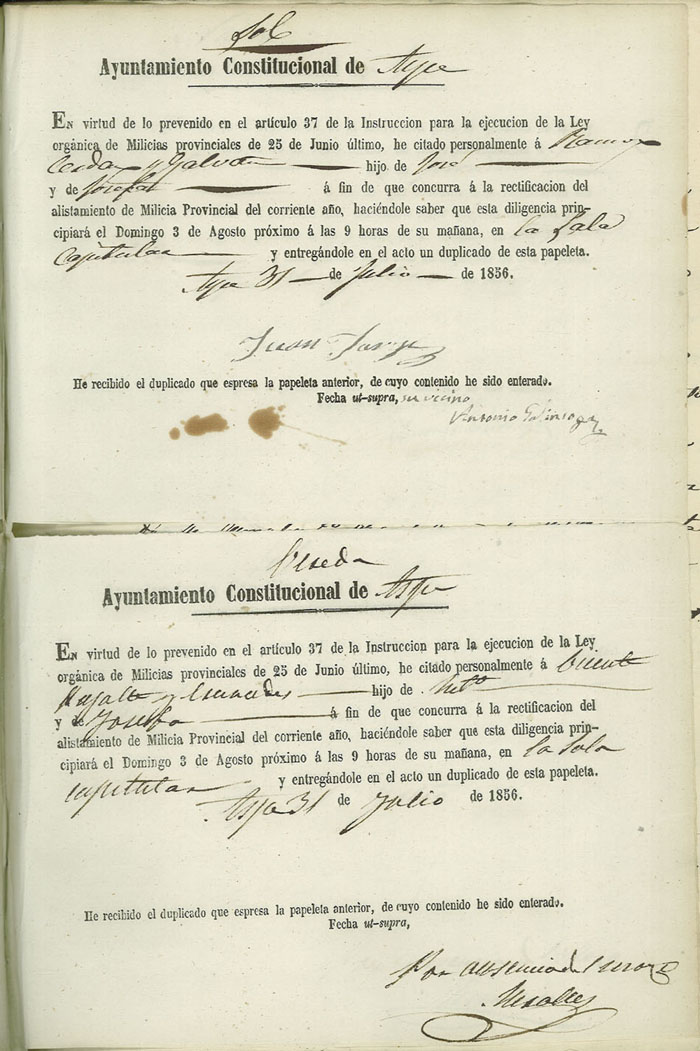 Sol
Ayuntamiento Constitucional de Aspe
EN virtud de lo prevenido en el artículo 37 de la Instruccion para la ejecucion de la Ley
orgánica de Milicias provinciales de 25 de Junio último, he citado personalmente á Ramon
Cerdan y Galvañ hijo de José
y de Josefa á fin de que concurra á la rectificacion del
alistamiento de Milicia Provincial del corriente año, haciéndole saber que esta diligencia prin-
cipiará el Domingo 3 de Agosto próximo á las 9 horas de su mañana, en la Sala
Capitular y entregándole en el acto un duplicado de esta papeleta.
Aspe 31 de Julio de 1856.
Juan
He recibido el duplicado que espresa la papeleta anterior, de cuyo contenido he sido enterado.
Fecha ut-supra, su vecino
Antonio
Ayuntamiento Constitucional de Aspe
EN virtud de lo prevenido en el artículo 37 de la Instruccion para la ejecucion de la Ley
orgánica de Milicias provinciales de 25 de Junio último, he citado personalmente á Vicente
y hijo de
y de Josefa á fin de que concurra á la rectificacion del
alistamiento de Milicia Provincial del corriente año, haciéndole saber que esta diligencia prin-
cipiará el Domingo 3 de Agosto próximo á las 9 horas de su mañana, en la Sala
capitular y entregándole en el acto un duplicado de esta papeleta.
Aspe 31 de Julio de 1856.
He recibido el duplicado que espresa la papeleta anterior, de cuyo contenido he sido enterado.
Fecha ut-supra,
Por ausencia del mozo